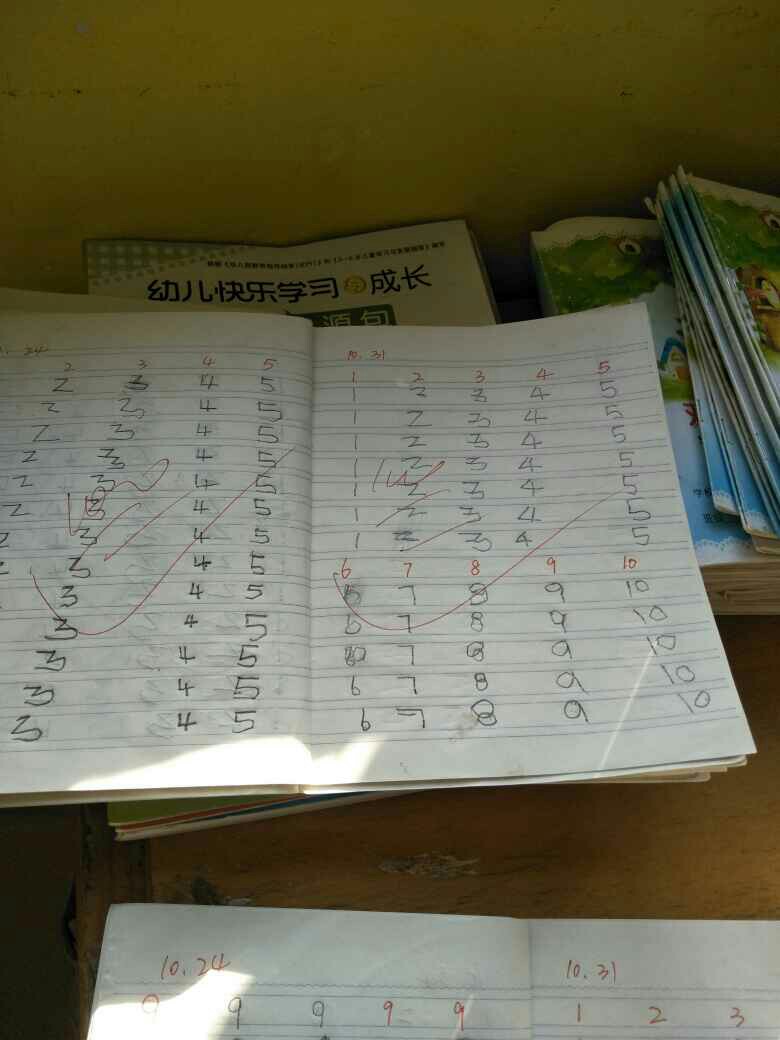 幼儿快乐学习与成长
源包
24
10.31
2 3 4 5
1 2 3 4 5
2 3 4 5
1 2 3 4 5
2 3 4 5
1 2 3 4 5
2 3 4 5
1 2 3 4 5
2 3 4 5
1 2 3 4 5
2 3 4 5
1 2 3 4 5
2 3 4 5
1 2 3 4 5
2 3 4 5
1 2 3 4 5
3 4 5
6 7 8 9 10
3 4 5
6 7 8 9 10
3 4 5
6 7 8 9 10
3 4 5
7 8 9 10
3 4 5
6 7 8 9 10
3 4 5
6 7 8 9 10
学校
班级
10.24
10.31
9 9 9 9 9
1 2 3